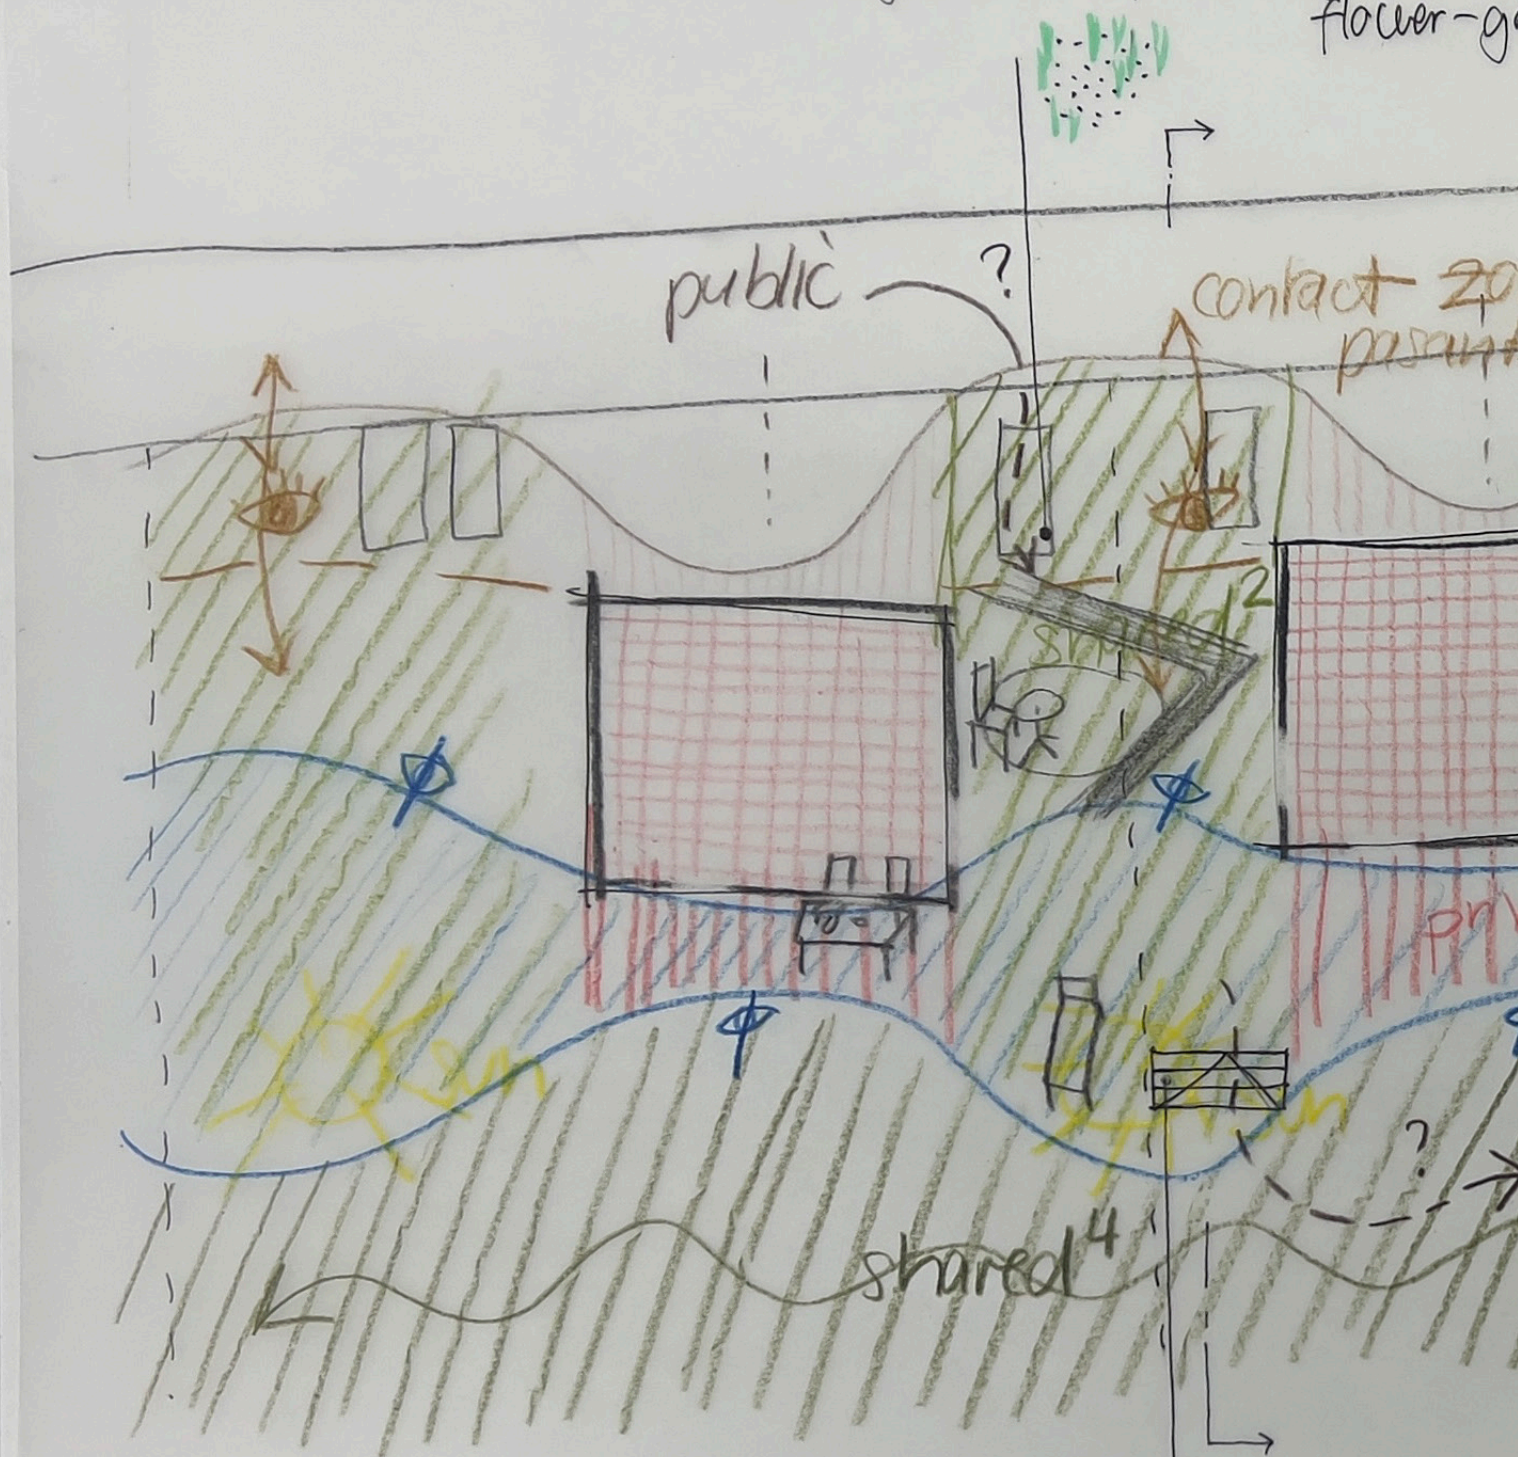 flower-ga
public
?
contact zo
pasant
shared²
priv
sun
sun
?
shared⁴